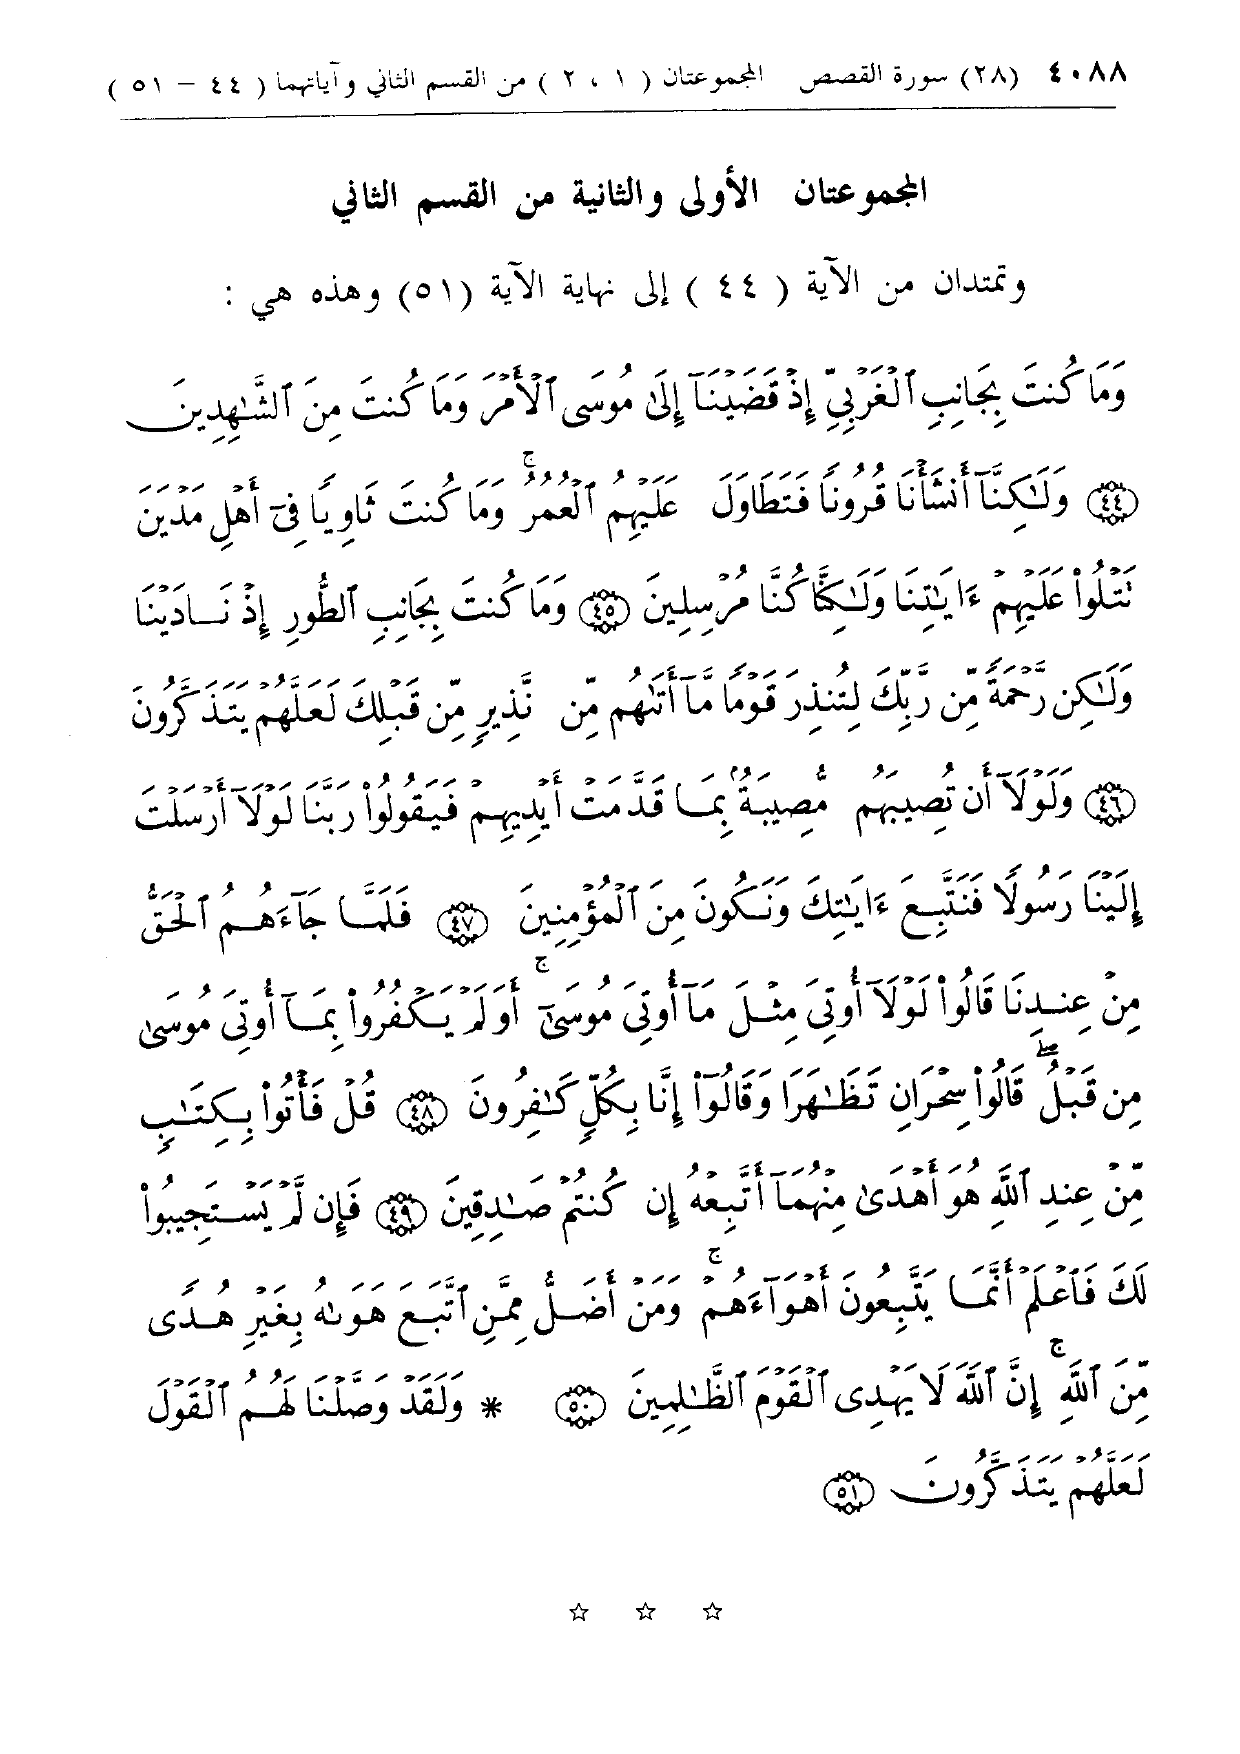 ٤٠٨٨ (٢٨) سورة القصص المجموعتان ( ١ ، ٢ ) من القسم الثاني وآياتهما ( ٤٤ – ٥١ )
المجموعتان الأولى والثانية من القسم الثاني
وتمتدان من الآية ( ٤٤ ) إلى نهاية الآية (٥١) وهذه هي :
وَمَا كُنتَ بِجَانِبِ ٱلْغَرْبِيِّ إِذْ قَضَيْنَآ إِلَىٰ مُوسَى ٱلْأَمْرَ وَمَا كُنتَ مِنَ ٱلشَّٰهِدِينَ
﴿٤٤﴾ وَلَٰكِنَّآ أَنشَأْنَا قُرُونًا فَتَطَاوَلَ عَلَيْهِمُ ٱلْعُمُرُ ۚ وَمَا كُنتَ ثَاوِيًا فِىٓ أَهْلِ مَدْيَنَ
تَتْلُوا۟ عَلَيْهِمْ ءَايَٰتِنَا وَلَٰكِنَّا كُنَّا مُرْسِلِينَ ﴿٤٥﴾ وَمَا كُنتَ بِجَانِبِ ٱلطُّورِ إِذْ نَادَيْنَا
وَلَٰكِن رَّحْمَةً مِّن رَّبِّكَ لِتُنذِرَ قَوْمًا مَّآ أَتَىٰهُم مِّن نَّذِيرٍ مِّن قَبْلِكَ لَعَلَّهُمْ يَتَذَكَّرُونَ
﴿٤٦﴾ وَلَوْلَآ أَن تُصِيبَهُم مُّصِيبَةٌۢ بِمَا قَدَّمَتْ أَيْدِيهِمْ فَيَقُولُوا۟ رَبَّنَا لَوْلَآ أَرْسَلْتَ
إِلَيْنَا رَسُولًا فَنَتَّبِعَ ءَايَٰتِكَ وَنَكُونَ مِنَ ٱلْمُؤْمِنِينَ ﴿٤٧﴾ فَلَمَّا جَآءَهُمُ ٱلْحَقُّ
مِنْ عِندِنَا قَالُوا۟ لَوْلَآ أُوتِىَ مِثْلَ مَآ أُوتِىَ مُوسَىٰٓ ۚ أَوَلَمْ يَكْفُرُوا۟ بِمَآ أُوتِىَ مُوسَىٰ
مِن قَبْلُ ۖ قَالُوا۟ سِحْرَانِ تَظَٰهَرَا وَقَالُوٓا۟ إِنَّا بِكُلٍّ كَٰفِرُونَ ﴿٤٨﴾ قُلْ فَأْتُوا۟ بِكِتَٰبٍ
مِّنْ عِندِ ٱللَّهِ هُوَ أَهْدَىٰ مِنْهُمَآ أَتَّبِعْهُ إِن كُنتُمْ صَٰدِقِينَ ﴿٤٩﴾ فَإِن لَّمْ يَسْتَجِيبُوا۟
لَكَ فَٱعْلَمْ أَنَّمَا يَتَّبِعُونَ أَهْوَآءَهُمْ ۚ وَمَنْ أَضَلُّ مِمَّنِ ٱتَّبَعَ هَوَىٰهُ بِغَيْرِ هُدًى
مِّنَ ٱللَّهِ ۚ إِنَّ ٱللَّهَ لَا يَهْدِى ٱلْقَوْمَ ٱلظَّٰلِمِينَ ﴿٥٠﴾ * وَلَقَدْ وَصَّلْنَا لَهُمُ ٱلْقَوْلَ
لَعَلَّهُمْ يَتَذَكَّرُونَ ﴿٥١﴾
☆ ☆ ☆